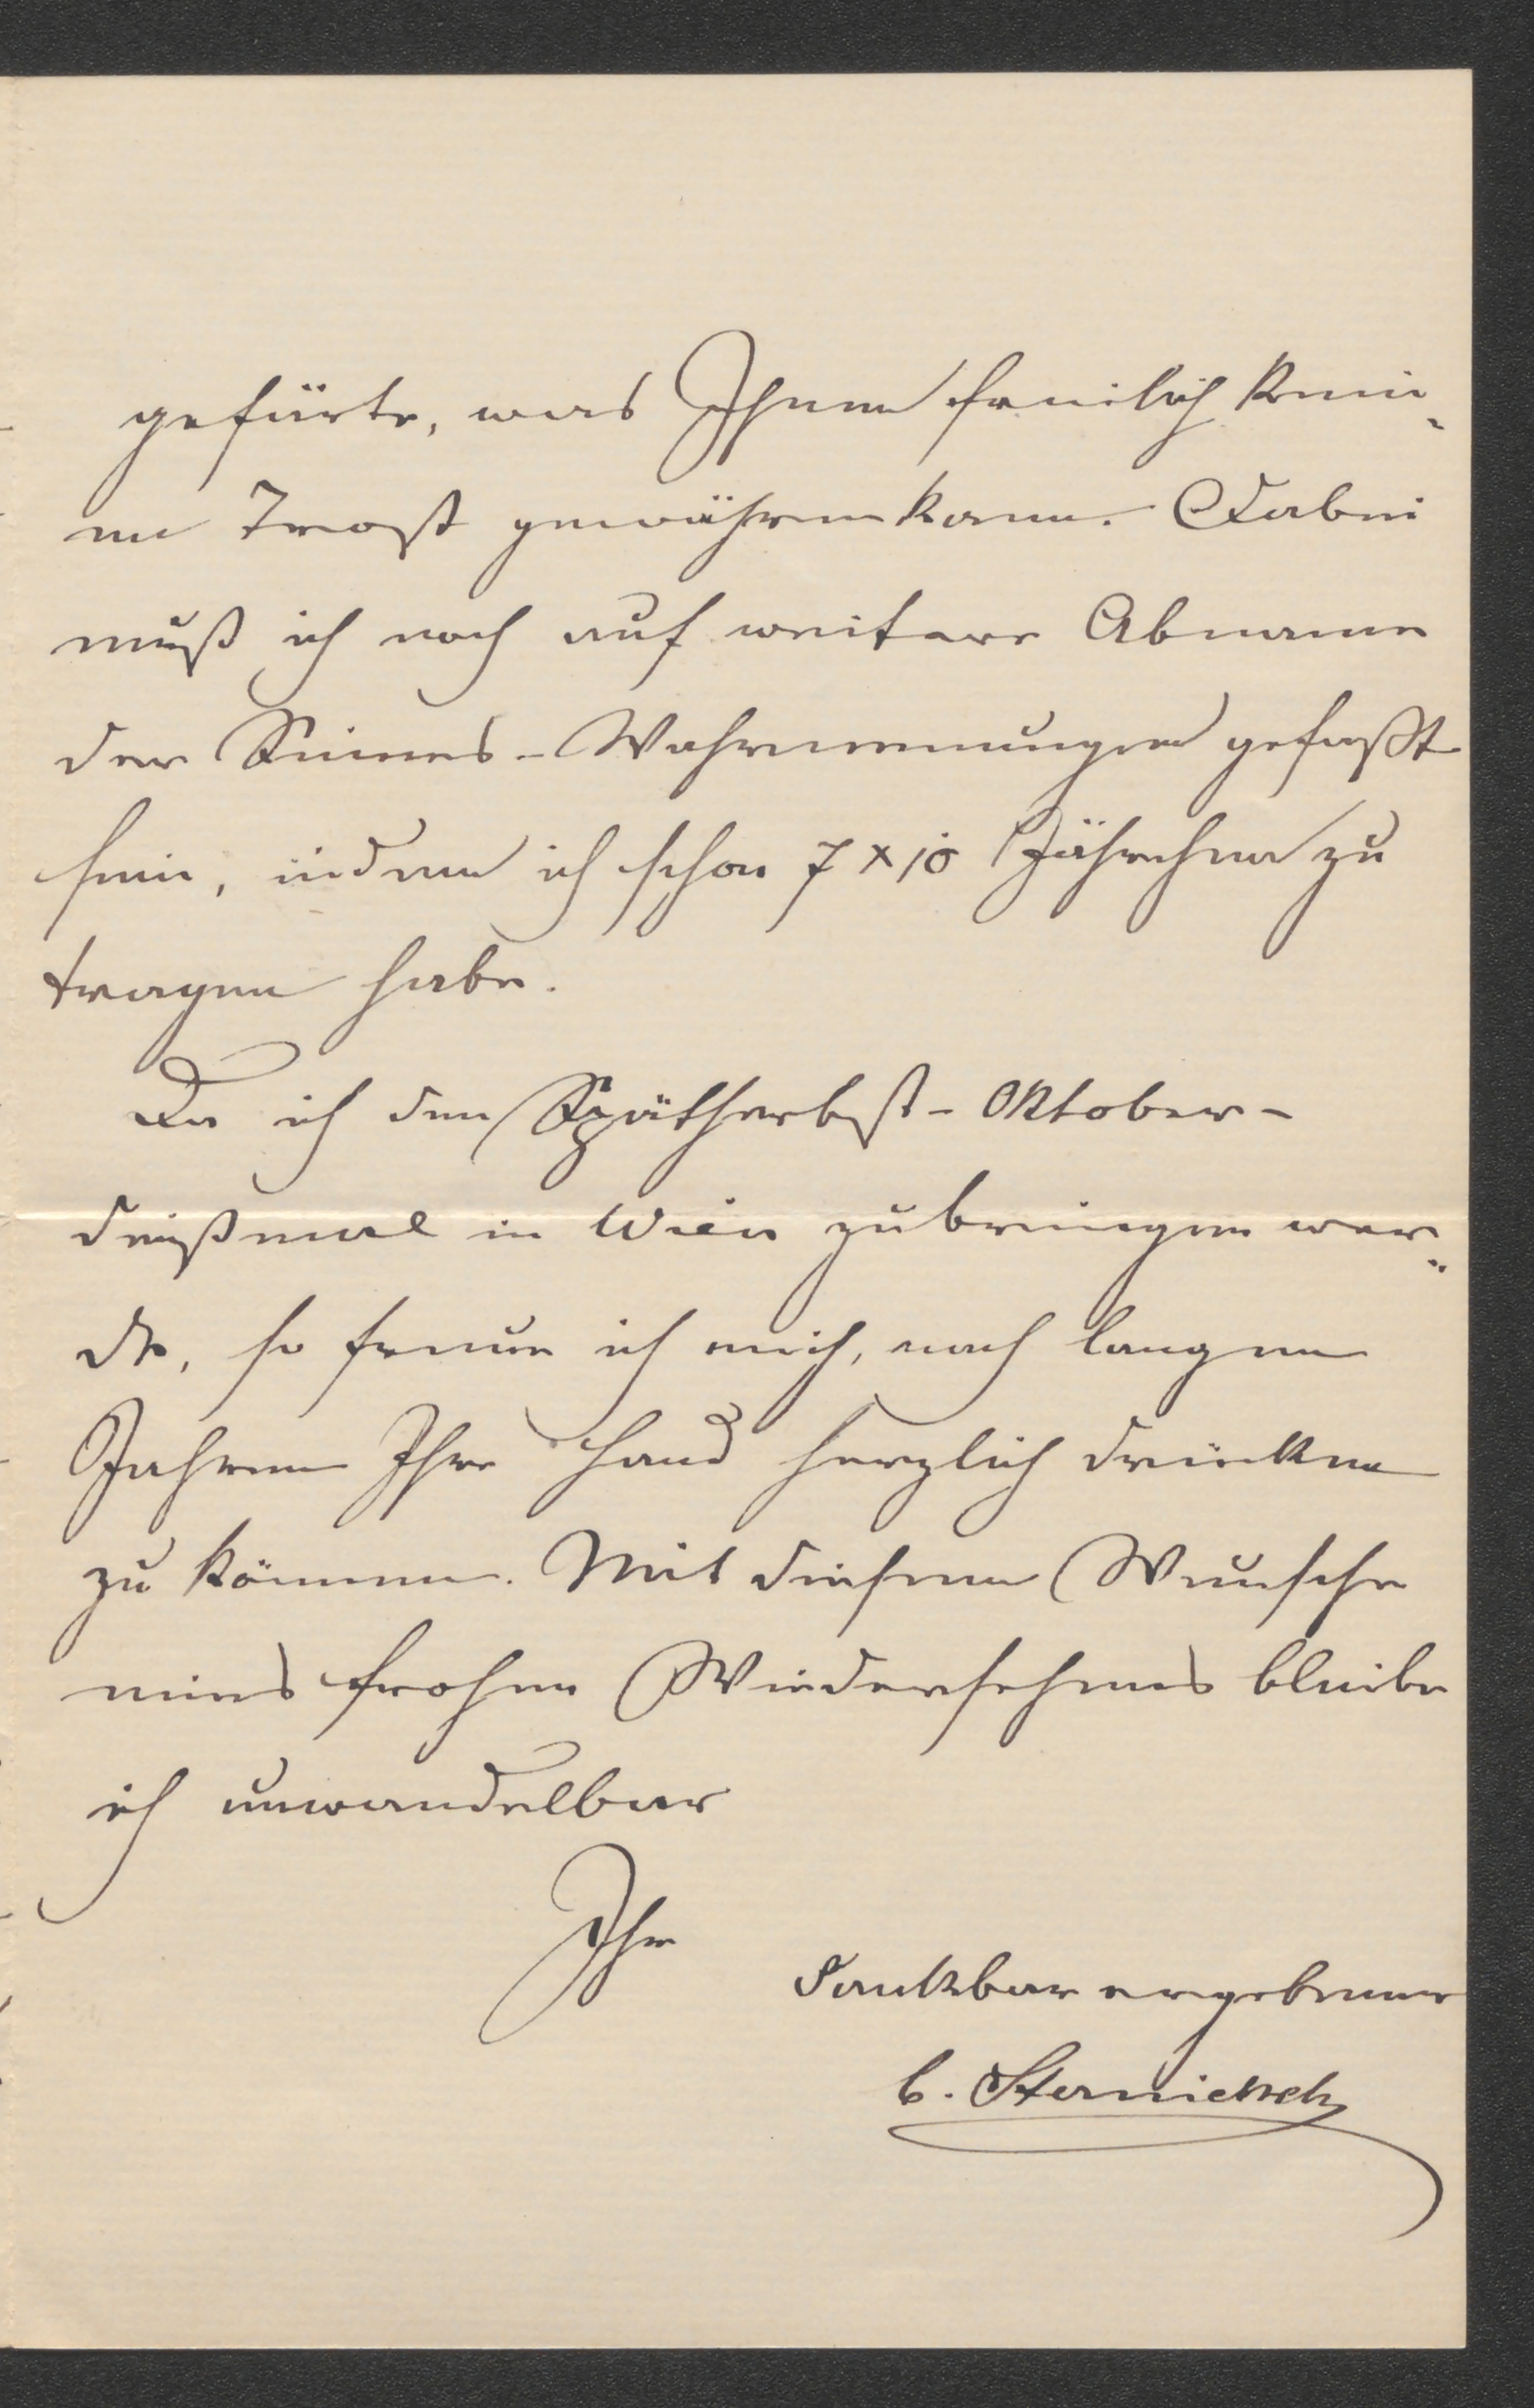 gefürte, was Ihnen freilich kein-
en Trost gewähren kann. Dabei
muß ich noch auf weitere Abname
der Sinnes-Wahrnemungen gefasst
sein, indem ich schon 7 x 10 Jährchen zu
tragen habe.
Da ich den Spätherbst - Oktober -
dießmal in Wien zubringen wer-
de, so freue ich mich, nach langen
Jahren Ihre Hand herzlich drücken
zu können. Mit diesem Wunsche
eines frohen Wiedersehens bleibe
ich unwandelbar
Ihr
dankbar ergebener
C.